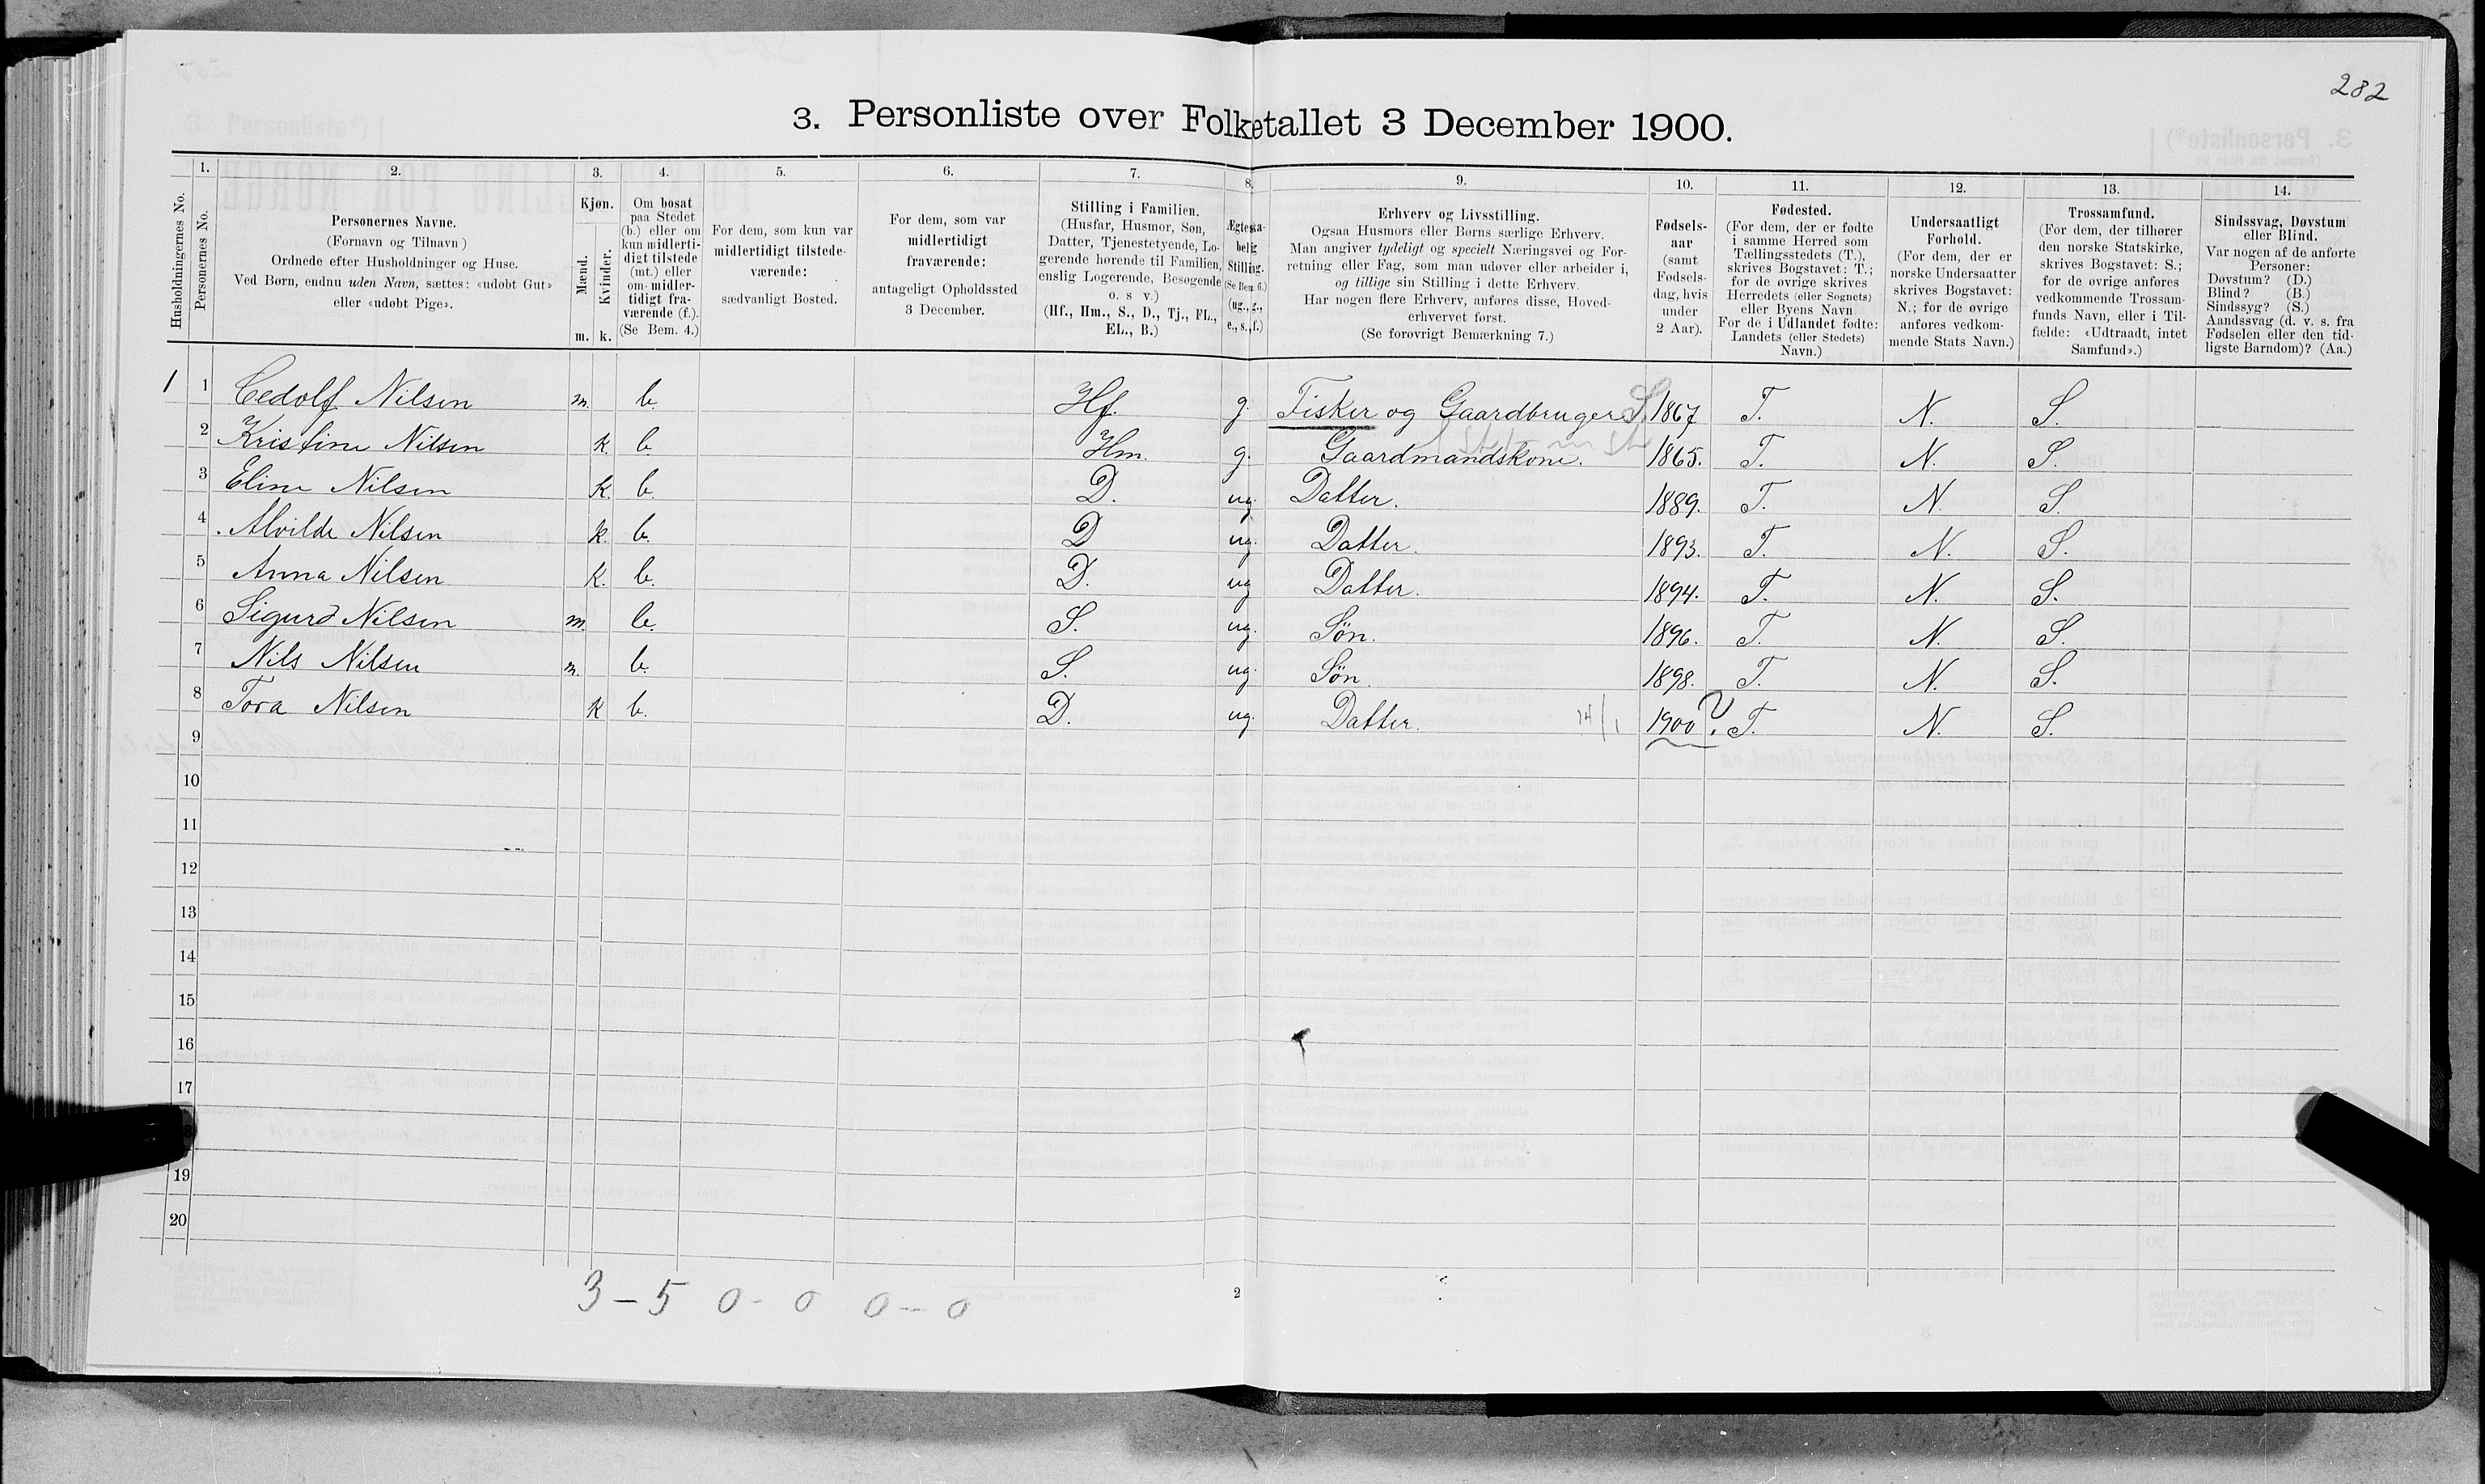 282
3. Personliste over Folketallet 3 December 1900.
1. 2. 3. 4. 5. 6. 7. 8. 9. 10. 11. 12. 13. 14.
Husholdningernes No.
Personernes No.
Personernes Navne.
(Fornavn og Tilnavn)
Ordnede efter Husholdninger og Huse.
Ved Børn, endnu uden Navn, sættes: «udøbt Gut»
eller «udøbt Pige».
Kjøn.
Mænd.
Kvinder.
m. k.
Om bosat
paa Stedet
(b.) eller om
kun midlerti-
digt tilstede
(mt.) eller
om midler-
tidigt fra-
værende (f.).
(Se Bem. 4.)
For dem, som kun var
midlertidigt tilstede-
værende:
sædvanligt Bosted.
For dem, som var
midlertidigt
fraværende:
antageligt Opholdssted
3 December.
Stilling i Familien.
(Husfar, Husmor, Søn,
Datter, Tjenestetyende, Lo-
gerende hørende til Familien,
enslig Logerende, Besøgende
o. s v.)
(Hf., Hm., S., D., Tj., FL.,
EL., B.)
Ægteska-
belig
Stilling.
(Se Bem. 6.)
(ug., g.,
e., s., f.)
Erhverv og Livsstilling.
Ogsaa Husmors eller Børns særlige Erhverv.
Man angiver tydeligt og specielt Næringsvei og For-
retning eller Fag, som man udøver eller arbeider i,
og tillige sin Stilling i dette Erhverv.
Har nogen flere Erhverv, anføres disse, Hoved-
erhvervet først.
(Se forøvrigt Bemærkning 7.)
Fødsels-
aar
(samt
Fødsels-
dag, hvis
under
2 Aar).
Fødested.
(For dem, der er fødte
i samme Herred som
Tællingsstedets (T.),
skrives Bogstavet: T.;
for de øvrige skrives
Herredets (eller Sognets)
eller Byens Navn
For de i Udlandet fødte:
Landets (eller Stedets)
Navn.)
Undersaatligt
Forhold.
(For dem, der er
norske Undersaatter
skrives Bogstavet:
N.; for de øvrige
anføres vedkom-
mende Stats Navn.)
Trossamfund.
(For dem, der tilhører
den norske Statskirke,
skrives Bogstavet: S.;
for de øvrige anføres
vedkommende Trossam-
funds Navn, eller i Til-
fælde: «Udtraadt, intet
Samfund».)
Sindssvag, Døvstum
eller Blind.
Var nogen af de anførte
Personer:
Døvstum? (D.)
Blind? (B.)
Sindssyg? (S.)
Aandssvag (d. v. s. fra
Fødselen eller den tid-
ligste Barndom)? (Aa.)
1 1 Cedolf Nilsen m. b. Hf. g. Fisker og Gaardbruger S. 1867 T. N. S.
2 Kristine Nilsen k b. Hm. g. Gaardmandskone. 1865. T. N. S.
3 Eline Nilsen k. b. D. ug. Datter. 1889. T. N. S.
4 Alvilde Nilsen k. b. D ug. Datter. 1893. T. N. S.
5 Anna Nilsen k. b. D. ug Datter. 1894. T. N. S.
6 Sigurd Nilsen m. b. S. ug. Søn. 1896. T. N. S.
7 Nils Nilsen m. b. S. ug. Søn. 1898. T. N. S.
8 Tora Nilsen k b. D. ug. Datter. 14/1 1900 ? T. N. S.
9
10
11
12
13
14
15
16
17
19
20
3 - 5 0 - 0 0 - 0
2